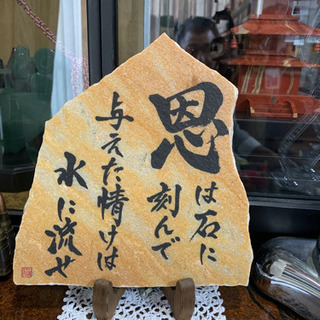 恩は石に
刻んで
与えた情けは
水に流せ